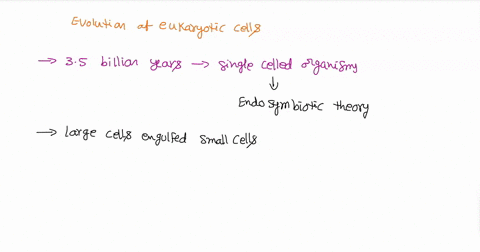 Evolution of eukaryotic cells
→ 3.5 billion years → single celled organism
↓
Endosymbiotic theory
→ large cells engulfed small cells